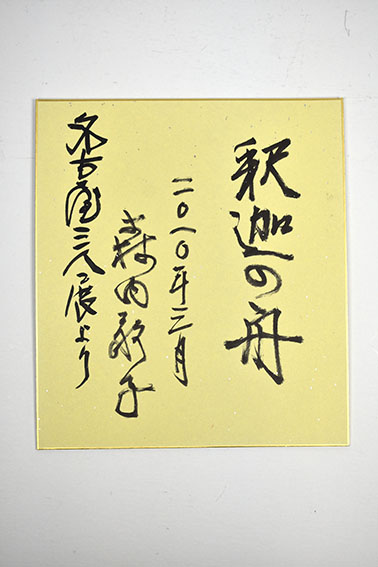 釈迦の舟
二〇一〇年三月
森内敬子
名古屋三人展より